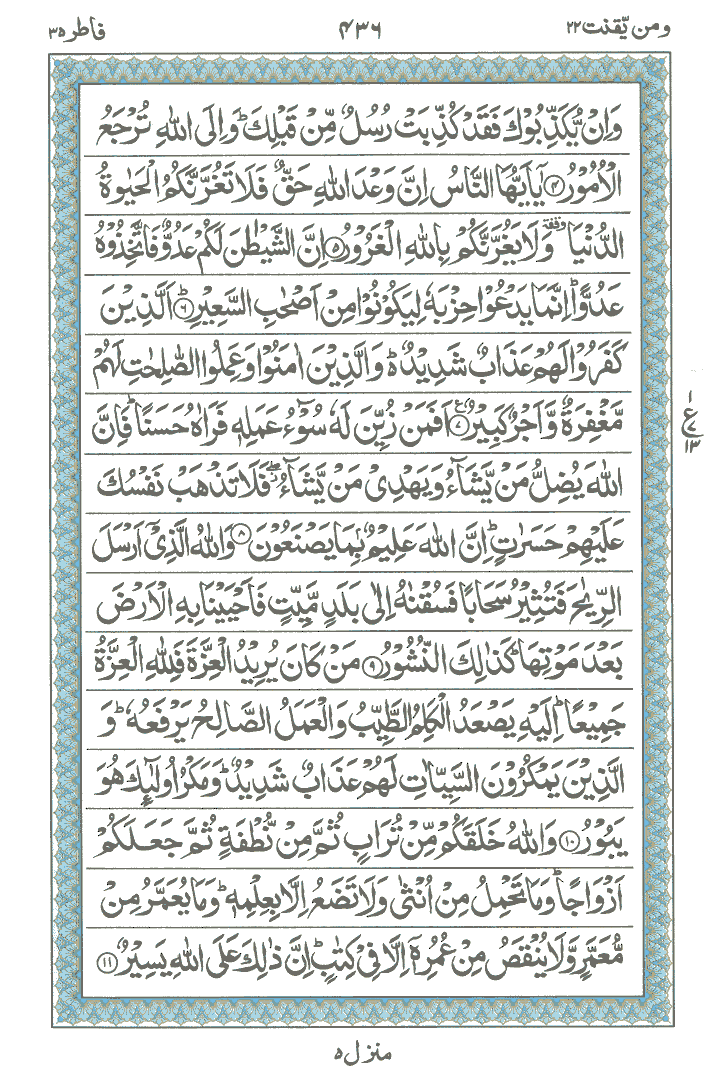 ومن يّقنت ٢٢ ۴۳۶ فاطر ۳۵
وَاِنْ يُّكَذِّبُوْكَ فَقَدْ كُذِّبَتْ رُسُلٌ مِّنْ قَبْلِكَ ؕ وَاِلَى اللّٰهِ تُرْجَعُ
الْاُمُوْرُ ۴ يٰۤاَيُّهَا النَّاسُ اِنَّ وَعْدَ اللّٰهِ حَقٌّ فَلَا تَغُرَّنَّكُمُ الْحَيٰوةُ
الدُّنْيَا ٝ وَلَا يَغُرَّنَّكُمْ بِاللّٰهِ الْغَرُوْرُ ۵ اِنَّ الشَّيْطٰنَ لَكُمْ عَدُوٌّ فَاتَّخِذُوْهُ
عَدُوًّا ؕ اِنَّمَا يَدْعُوْا حِزْبَهٗ لِيَكُوْنُوْا مِنْ اَصْحٰبِ السَّعِيْرِ ؕ ۶ اَلَّذِيْنَ
كَفَرُوْا لَهُمْ عَذَابٌ شَدِيْدٌ ؕ۬ وَالَّذِيْنَ اٰمَنُوْا وَعَمِلُوا الصّٰلِحٰتِ لَهُمْ
مَّغْفِرَةٌ وَّاَجْرٌ كَبِيْرٌ ۷ اَفَمَنْ زُيِّنَ لَهٗ سُوْٓءُ عَمَلِهٖ فَرَاٰهُ حَسَنًا ؕ فَاِنَّ
ع
۱
۷
۱۳
اللّٰهَ يُضِلُّ مَنْ يَّشَآءُ وَيَهْدِيْ مَنْ يَّشَآءُ ۖ فَلَا تَذْهَبْ نَفْسُكَ
عَلَيْهِمْ حَسَرٰتٍ ؕ اِنَّ اللّٰهَ عَلِيْمٌۢ بِمَا يَصْنَعُوْنَ ۸ وَاللّٰهُ الَّذِيْۤ اَرْسَلَ
الرِّيٰحَ فَتُثِيْرُ سَحَابًا فَسُقْنٰهُ اِلٰى بَلَدٍ مَّيِّتٍ فَاَحْيَيْنَا بِهِ الْاَرْضَ
بَعْدَ مَوْتِهَا ؕ كَذٰلِكَ النُّشُوْرُ ۹ مَنْ كَانَ يُرِيْدُ الْعِزَّةَ فَلِلّٰهِ الْعِزَّةُ
جَمِيْعًا ؕ اِلَيْهِ يَصْعَدُ الْكَلِمُ الطَّيِّبُ وَالْعَمَلُ الصَّالِحُ يَرْفَعُهٗ ؕ وَ
الَّذِيْنَ يَمْكُرُوْنَ السَّيِّاٰتِ لَهُمْ عَذَابٌ شَدِيْدٌ ؕ وَمَكْرُ اُولٰٓئِكَ هُوَ
يَبُوْرُ ۱۰ وَاللّٰهُ خَلَقَكُمْ مِّنْ تُرَابٍ ثُمَّ مِنْ نُّطْفَةٍ ثُمَّ جَعَلَكُمْ
اَزْوَاجًا ؕ وَمَا تَحْمِلُ مِنْ اُنْثٰى وَلَا تَضَعُ اِلَّا بِعِلْمِهٖ ؕ وَمَا يُعَمَّرُ مِنْ
مُّعَمَّرٍ وَّلَا يُنْقَصُ مِنْ عُمُرِهٖۤ اِلَّا فِيْ كِتٰبٍ ؕ اِنَّ ذٰلِكَ عَلَى اللّٰهِ يَسِيْرٌ ۱۱
منزل ۵